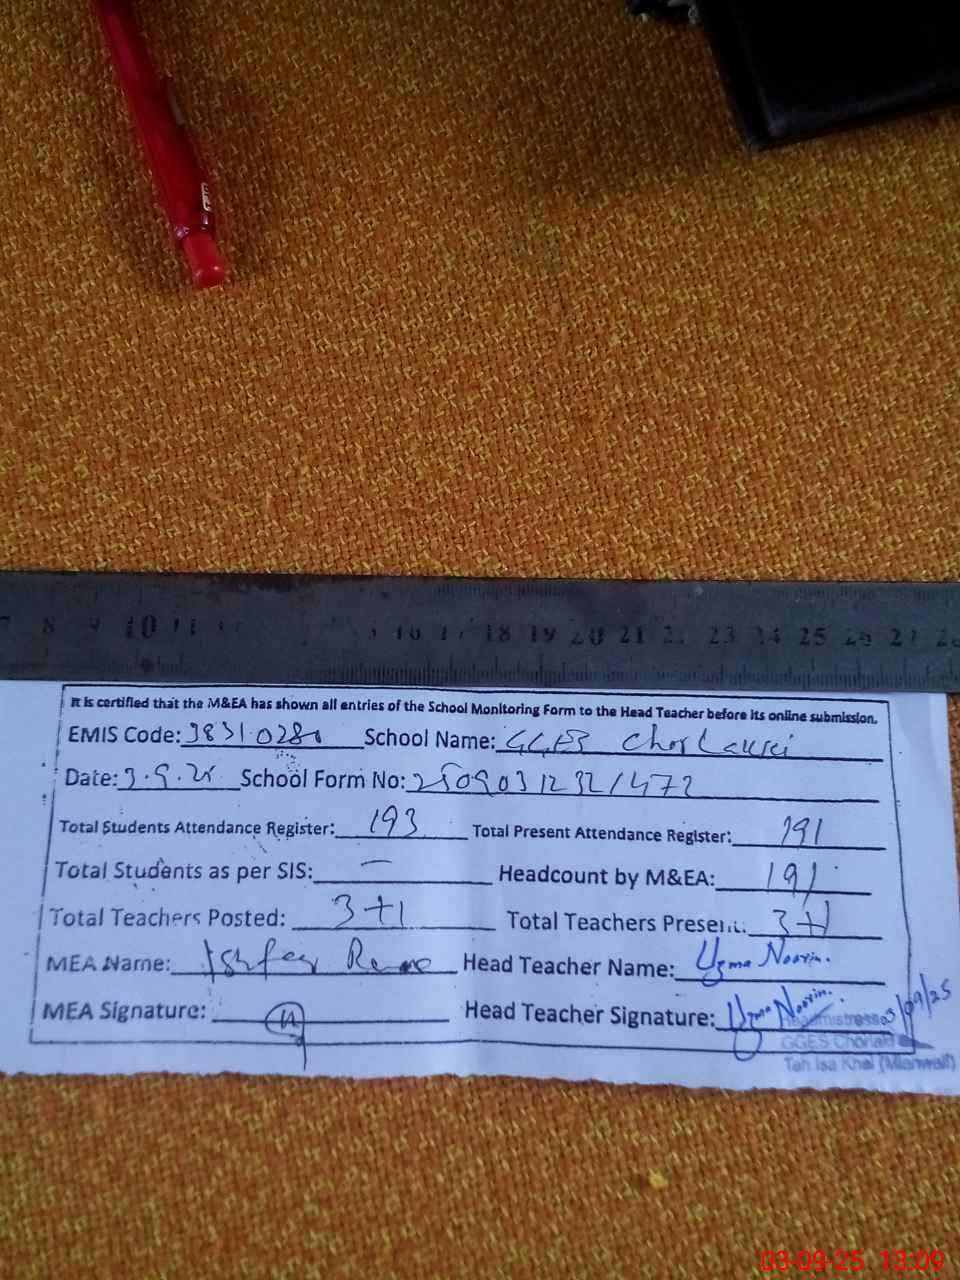 8 9 10 11 16 17 18 19 20 21 22 23 24 25 26 27
It is certified that the M&EA has shown all entries of the School Monitoring Form to the Head Teacher before its online submission.
EMIS Code: 38310280 School Name: GGES
Date: 3.9.25 School Form No:
Total Students Attendance Register: 193 Total Present Attendance Register: 191
Total Students as per SIS: — Headcount by M&EA: 191
Total Teachers Posted: 3+1 Total Teachers Present: 3+1
MEA Name: Head Teacher Name: Uzma Noorin.
MEA Signature: Head Teacher Signature: Uzma Noorin. 03/09/25
Headmistress
GGES
Teh Isa Khel (Mianwali)
03-09-25 13:09